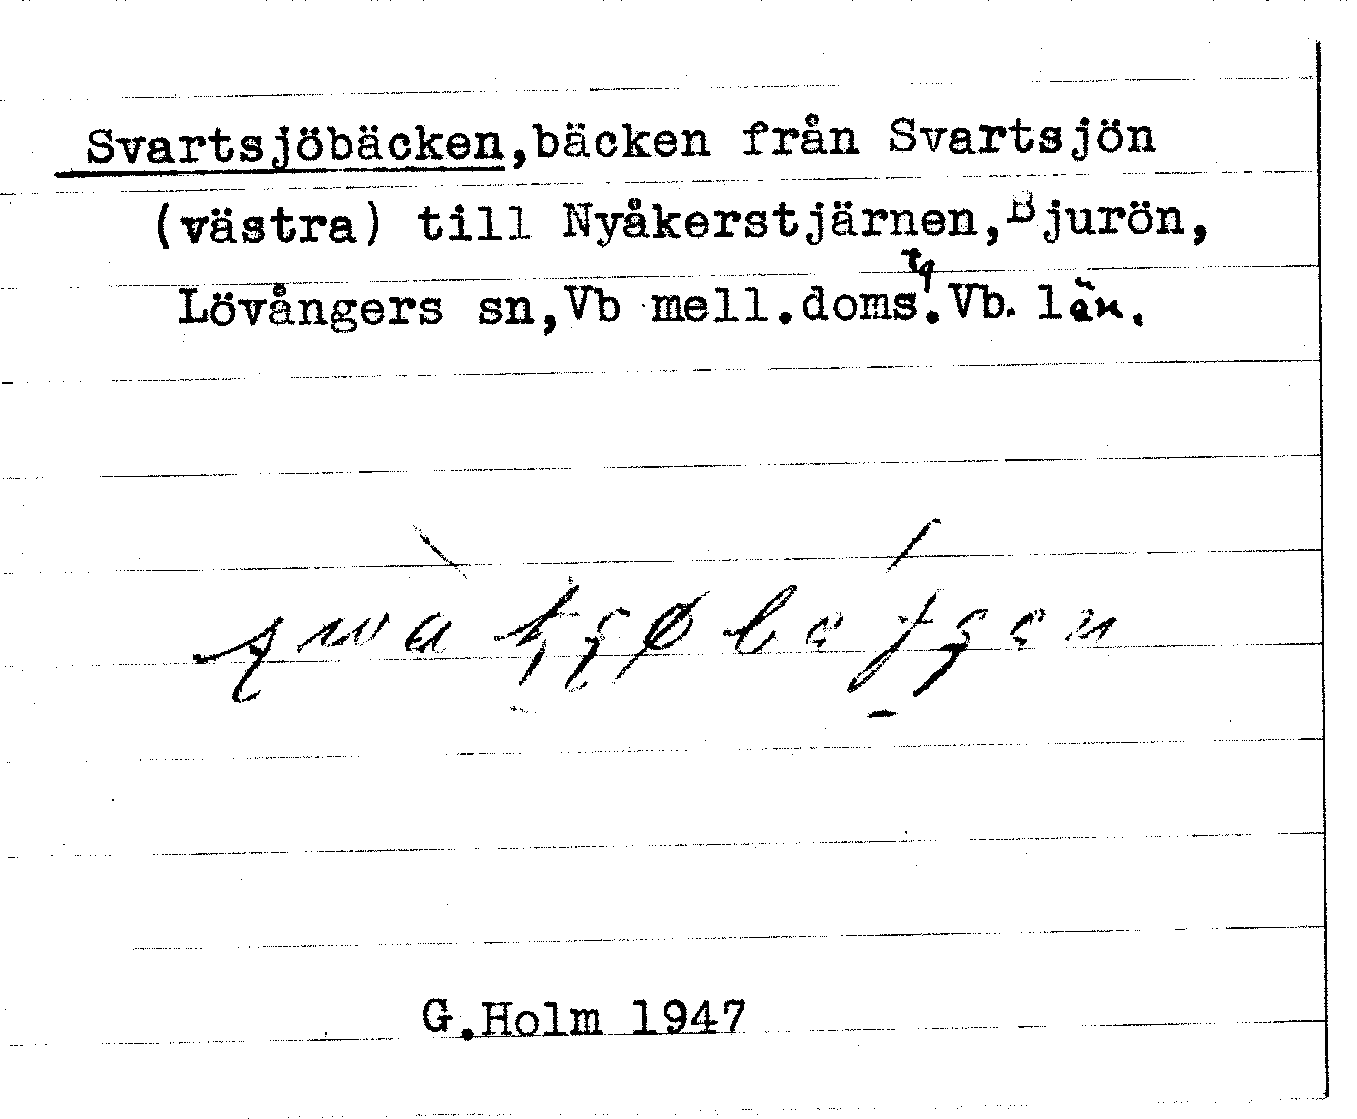 Svartsjöbäcken,bäcken från Svartsjön
(västra) till Nyåkerstjärnen,Bjurön,
Lövångers sn,Vb mell.doms.tg Vb. län.
G.Holm 1947